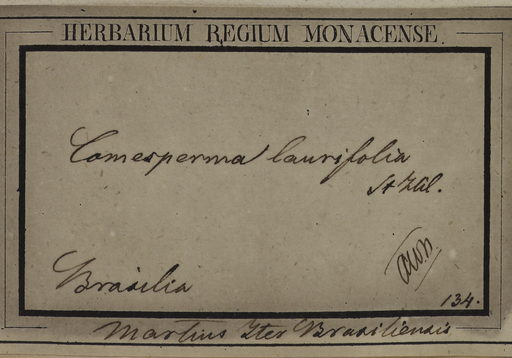 HERBARIUM REGIUM MONACENSE.
Comesperma laurifolia
St Hil.
Brasilia
134.
Martius Iter Brasiliensis